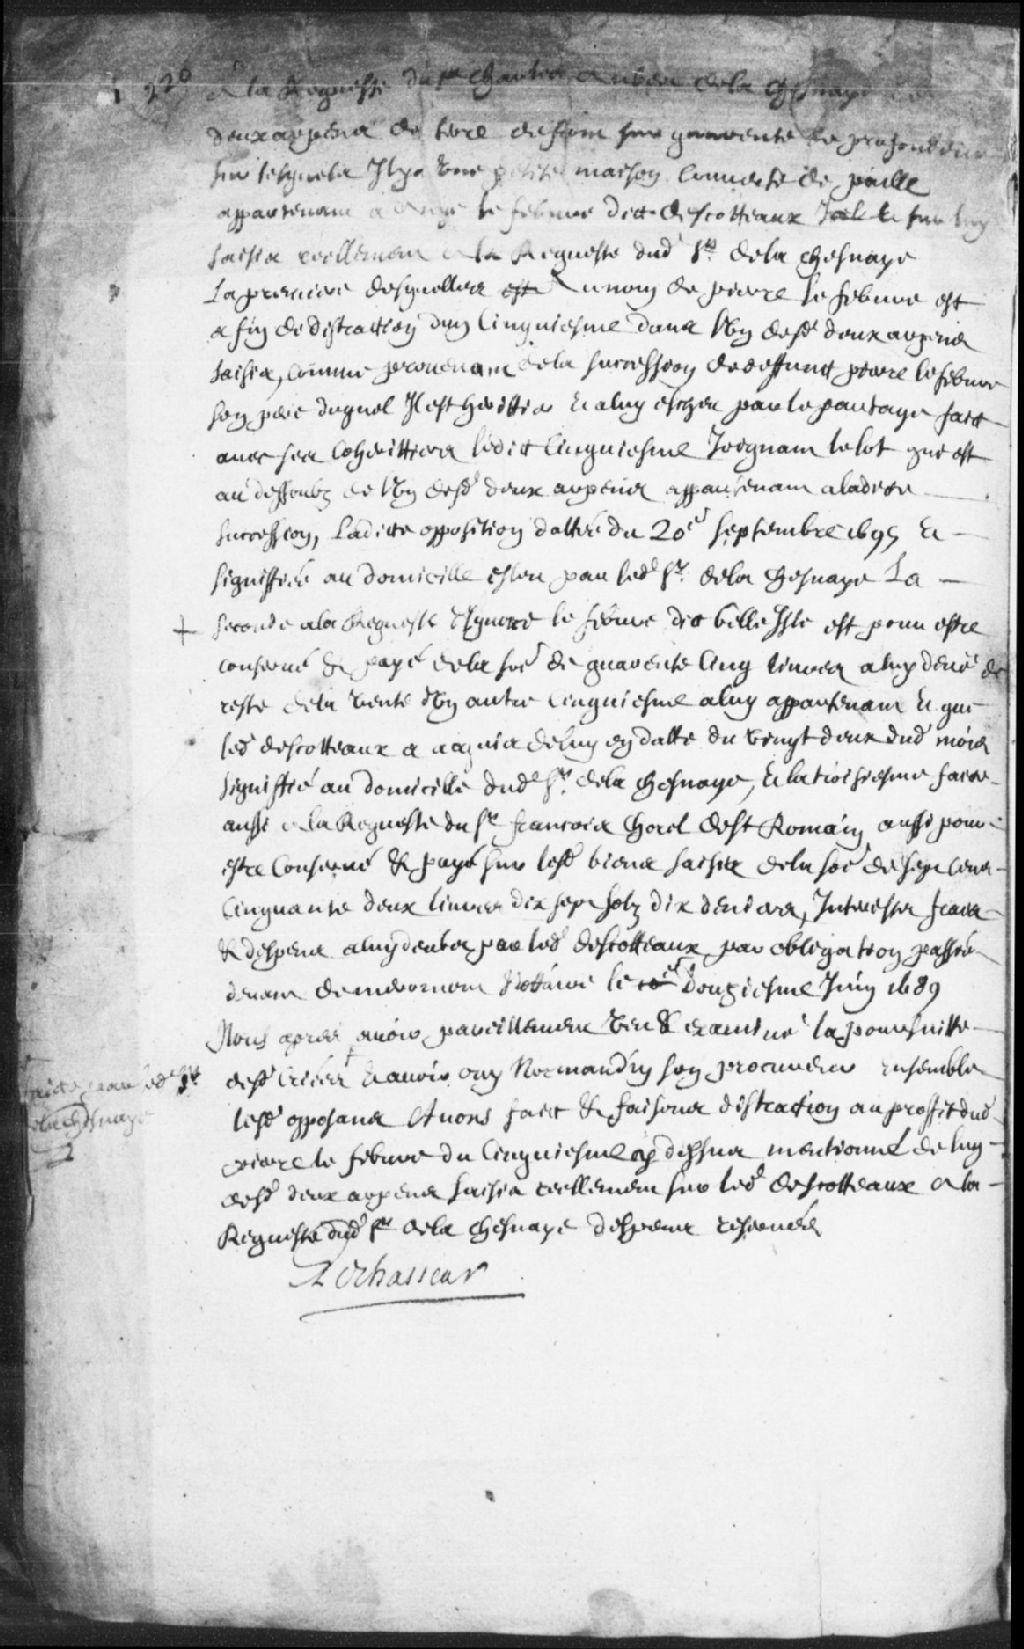 220
a la Requeste du sr Charles Aubert dela Chesnaye de
deux arpens de terre de front sur quarente de profondeur
sur lesquels Il y a Une petite maison Couverte de paille
appartenant a Ange le febvre dit descotteaux Icelle sur luy
saisis reellement a la Requeste dud sr. dela Chesnaye
La premiere desquelles au nom de pierre le febvre est
a fin de distraction dun Cinquiesme dans Un desd deux arpens
saisis, comme provenant dela succession de deffunct pierre lefebvre
son pere duquel Il est heritier Et a luy escheu par le partage fait
avec ses Coheritiers ledit Cinquiesme Joignant le lot que est
au dessoubz de Un desd deux arpens appartenant a ladite
succession, Ladite opposition dattée du 20e septembre 1695 Et
signiffiée au domicille esleu par led sr. dela Chesnaye La
+ seconde a la Requeste dIgnace le febvre dit belle Isle est pour estre
conservé & payé dela soe de quarente Cinq livres a luy deue de
reste dela Vente dUn autre Cinquiesme a luy appartenant Et que
led descotteaux a acquis deluy en datte du Vingt deux dud mois
signiffié au domicille dud sr. dela Chesnaye, Et la troisiesme faite
aussi a la Requeste du sr francois Chorel de St Romain aussi pour
estre Conservé & payé sur lesd biens saisis dela soe de sept cens
Cinquante deux livres dix sept solz dix deniers, Interests frais
& despens a luy deubes par led descotteaux par obligation passée
devant demeromont Nottaire le douziesme Juin 1689
Nous apres avoir pareillement Veu & examiné la poursuitte
desd Criées Et avoir ouy Normandin son procureur ensemble
faite par led sr
dela Chesnaye
lesd opposans Avons fait & faisons distraction au proffit dud
pierre le febvre du Cinquiesme cy dessus mentionné de luy
desd deux arpens saisis reellement sur led descotteaux a la
Requeste dud sr dela Chesnaye despens reservés